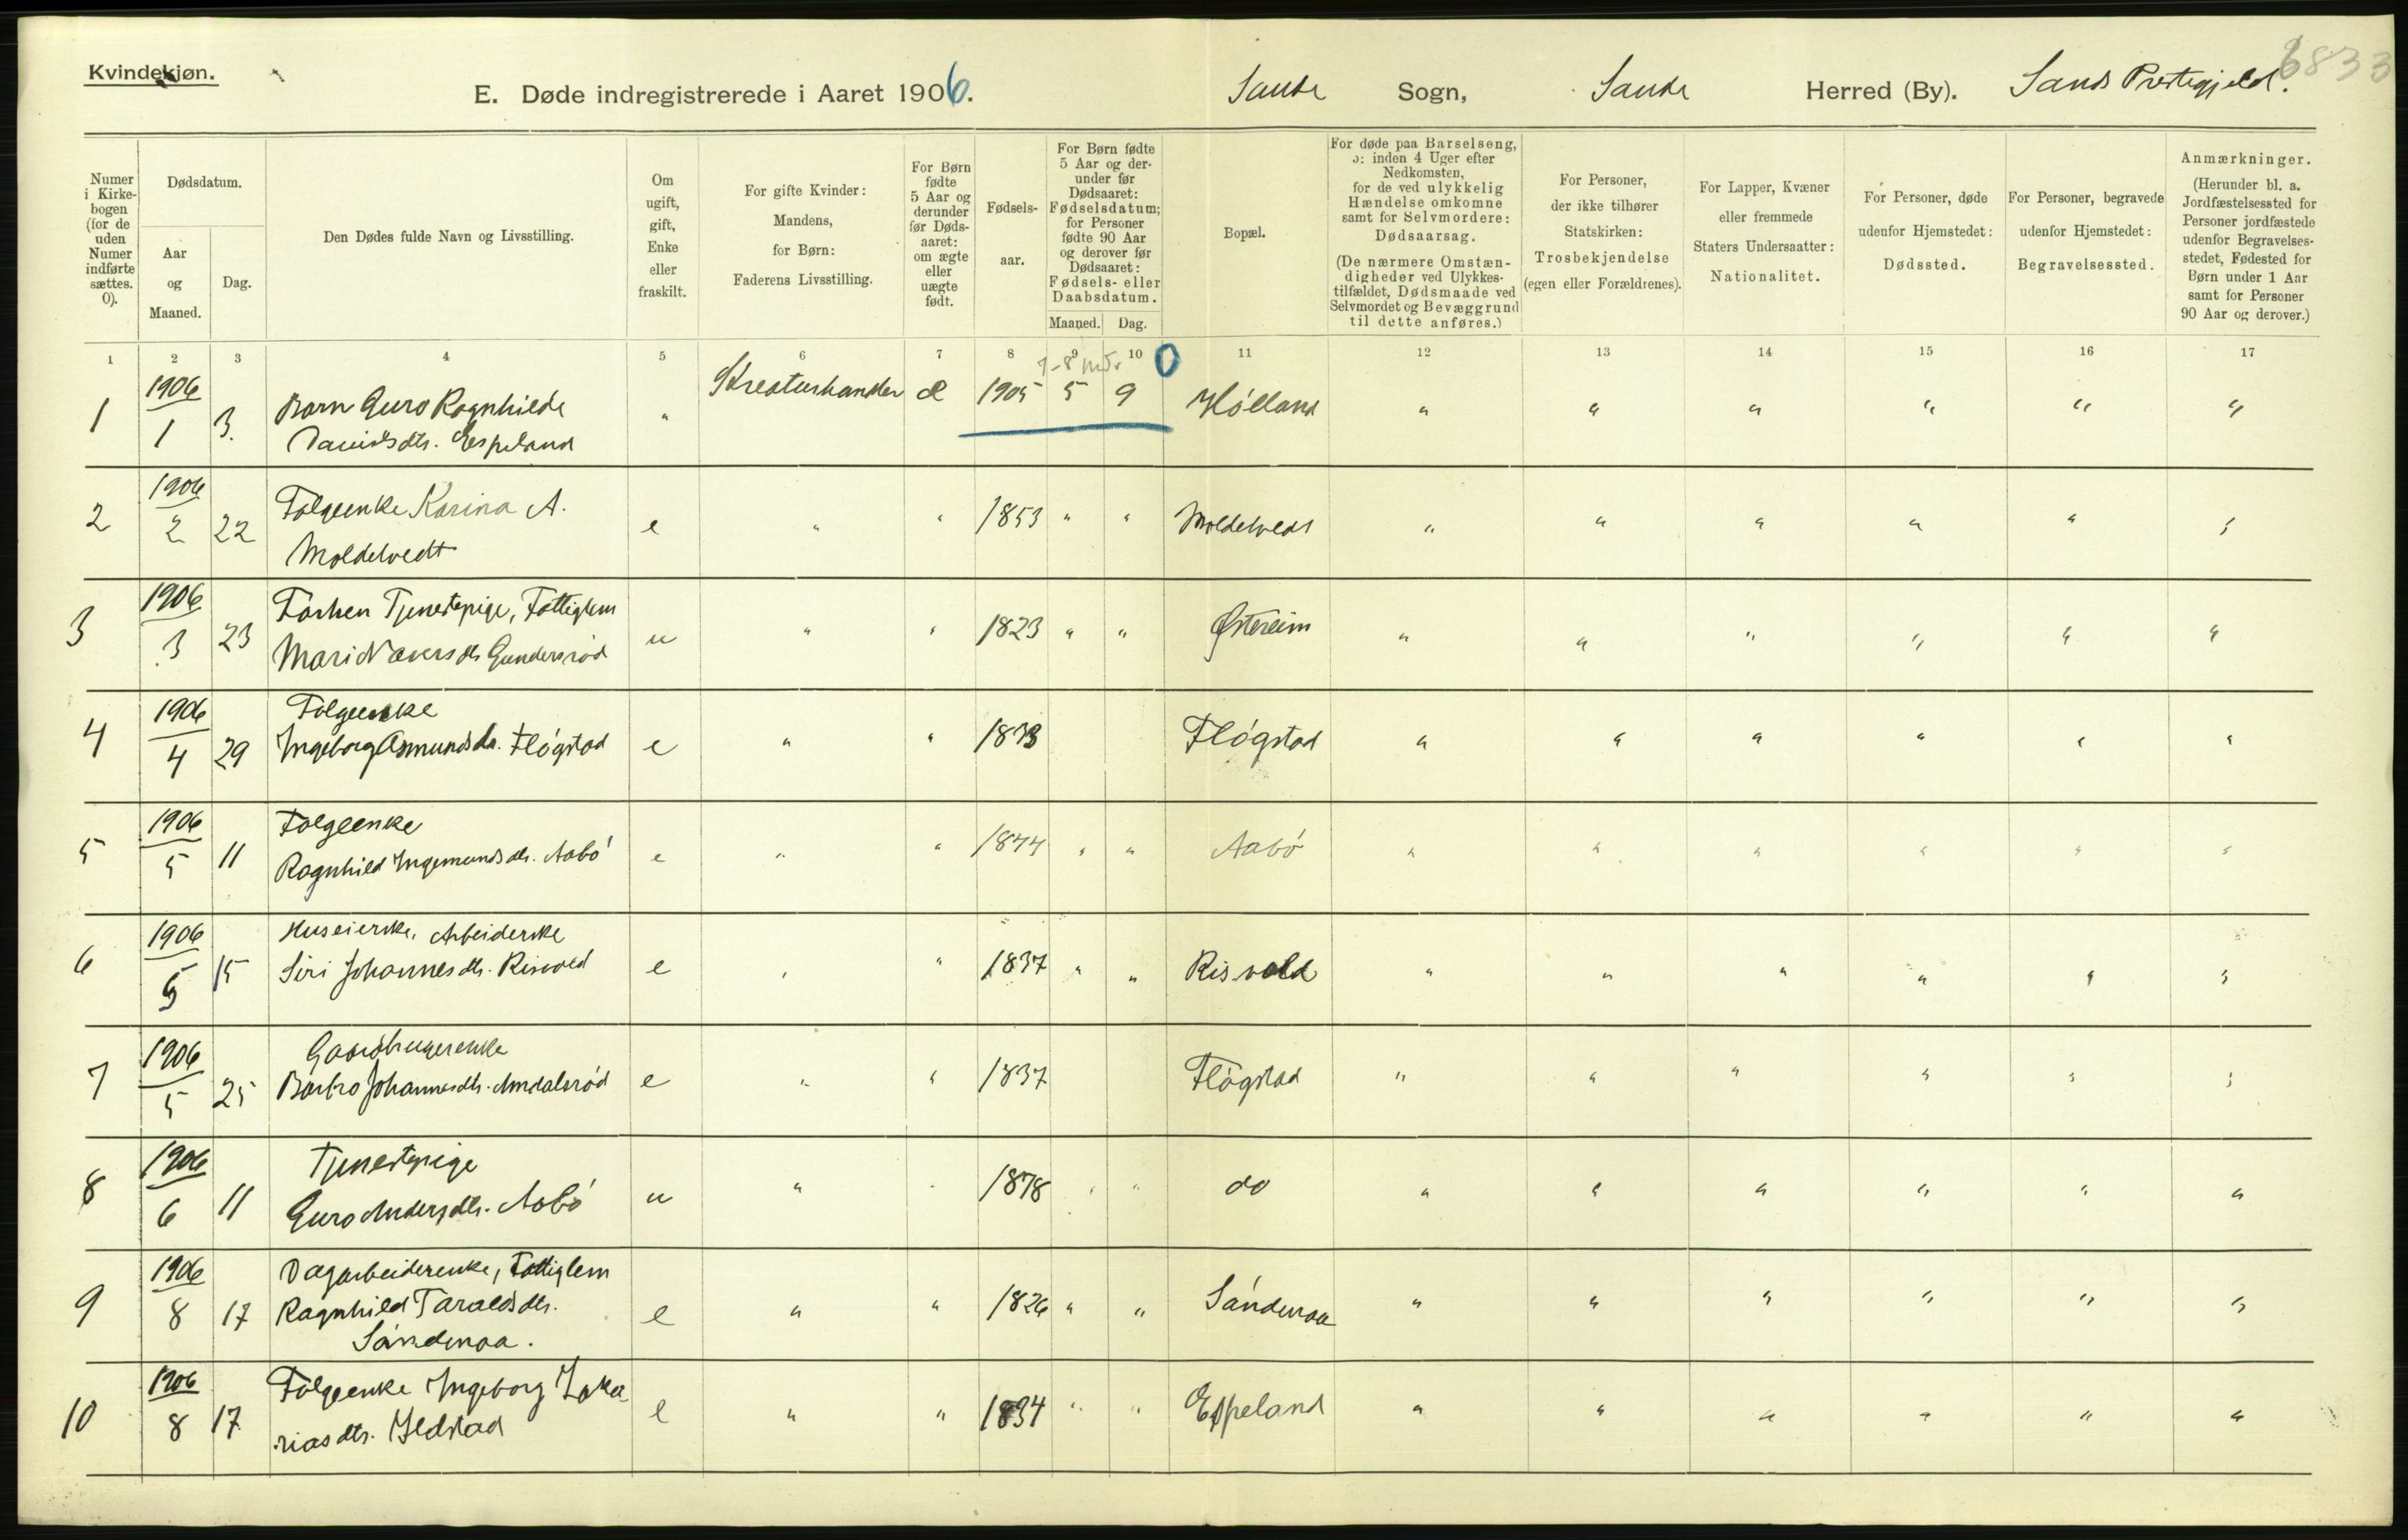 Kvindekjøn.
E. Døde indregistrerede i Aaret 1906. Saude Sogn, Saude Herred (By). Sands Prestegjeld. 6833
Numer i Kirkebogen (for de uden Numer indførte sættes. 0).
Dødsdatum.
Aar og Maaned.
Dag.
Den Dødes fulde Navn og Livsstilling.
Om ugift, gift, Enke eller fraskilt.
For gifte Kvinder: Mandens, for Børn: Faderens Livsstilling.
For Børn fødte 5 Aar og derunder før Dødsaaret: om ægte eller uægte født.
Fødselsaar.
For Børn fødte 5 Aar og derunder før Dødsaaret: Fødselsdatum; for Personer fødte 90 Aar og derover før Dødsaaret: Fødsels- eller Daabsdatum.
Maaned. Dag.
Bopæl.
For døde paa Barselseng, ɔ: inden 4 Uger efter Nedkomsten, for de ved ulykkelig Hændelse omkomne samt for Selvmordere: Dødsaarsag. (De nærmere Omstændigheder ved Ulykkestilfældet, Dødsmaade ved Selvmordet og Bevæggrund til dette anføres.)
For Personer, der ikke tilhører Statskirken: Trosbekjendelse (egen eller Forældrenes).
For Lapper, Kvæner eller fremmede Staters Undersaatter: Nationalitet.
For Personer, døde udenfor Hjemstedet: Dødssted.
For Personer, begravede udenfor Hjemstedet: Begravelsessted.
Anmærkninger. (Herunder bl. a. Jordfæstelsessted for Personer jordfæstede udenfor Begravelsesstedet, Fødested for Børn under 1 Aar samt for Personer 90 Aar og derover.)
1 2 3 4 5 6 7 8 9 10 11 12 13 14 15 16 17
7-8 mdr 0
1 1906/1 3. Barn Guro Ragnhilde Davidsdtr. Espeland " Kreaturhandler æ 1905 5 9 Hølland " " " " " "
2 1906/2 22 Folgeenke Karina A. Moldetvedt e " " 1853 " " Moldetvedt " " " " " "
3 1906/3 23 Forhen Tjenestepige, Fattiglem Mari dtr Gundersrød u " " 1823 " " Østereim " " " " " "
4 1906/4 29 Folgeenke Ingeborg Asmundsdtr. Fløgstad e " " Fløgstad " " " " " "
5 1906/5 11 Folgeenke Ragnhild Ingemundsdtr. Aabø e " " 1844 " " Aabø " " " " " "
6 1906/5 15 Huseierske, Arbeiderske Siri Johannesdtr. Risvold e " " 1837 " " Risvold " " " " " "
7 1906/5 25 Gaardbrugerenke Barbro Johannesdtr. Amdalsrød e " " 1837 Fløgstad " " " " " "
8 1906/6 11 Tjenestepige Guro Andersdtr. Aabø u " " 1878 " " do " " " " " "
9 1906/8 17 Dagarbeiderenke, Fattiglem Ragnhild Taraldsdtr. Søndenaa. e " " 1826 " " Søndenaa " " " " " "
10 1906/8 17 Folgeenke Ingeborg Zakariasdtr. Ilstad e " " 1834 " " Espeland " " " " " "